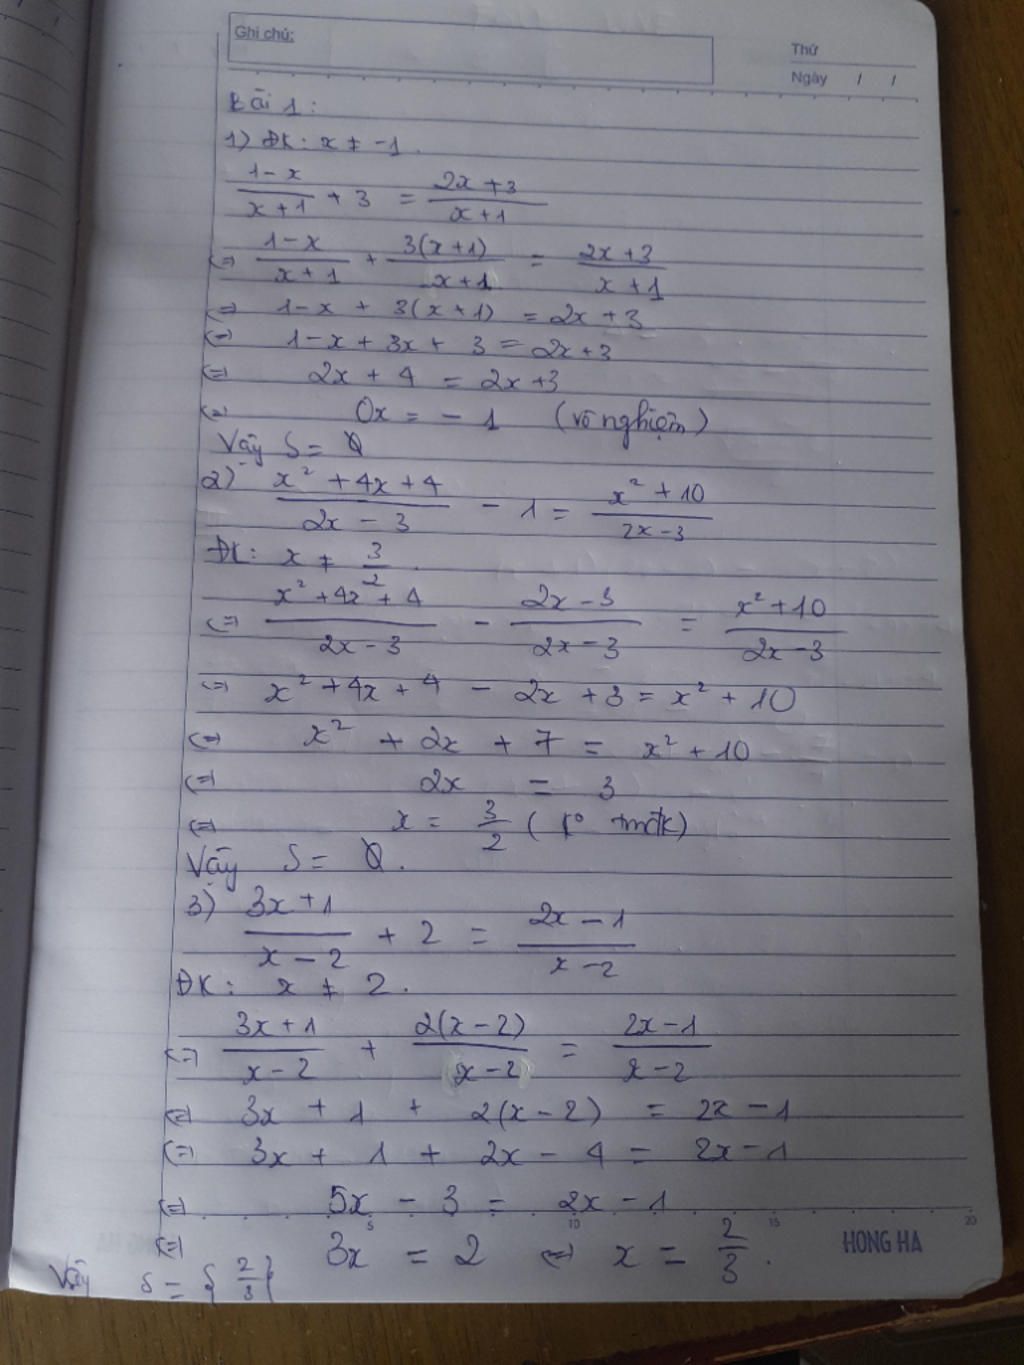 Ghi chú:
Thứ
Ngày / /
Bài 1:
1) ĐK: x ≠ -1.
(1-x)/(x+1) + 3 = (2x+3)/(x+1)
<=> (1-x)/(x+1) + 3(x+1)/(x+1) = (2x+3)/(x+1)
<=> 1-x + 3(x+1) = 2x+3
<=> 1-x+3x+3 = 2x+3
<=> 2x+4 = 2x+3
<=> 0x = -1 (vô nghiệm)
Vậy S = ∅
2) (x²+4x+4)/(2x-3) - 1 = (x²+10)/(2x-3)
ĐK: x ≠ 3/2.
<=> (x²+4x+4)/(2x-3) - (2x-3)/(2x-3) = (x²+10)/(2x-3)
<=> x²+4x+4 - 2x+3 = x²+10
<=> x² + 2x + 7 = x²+10
<=> 2x = 3
<=> x = 3/2 (k° tmđk)
Vậy S = ∅.
3) (3x+1)/(x-2) + 2 = (2x-1)/(x-2)
ĐK: x ≠ 2.
<=> (3x+1)/(x-2) + 2(x-2)/(x-2) = (2x-1)/(x-2)
<=> 3x + 1 + 2(x-2) = 2x-1
<=> 3x + 1 + 2x - 4 = 2x-1
<=> 5x - 3 = 2x-1
5 10 15 20
<=> 3x = 2 <=> x = 2/3.
HONG HA
Vậy S = {2/3}